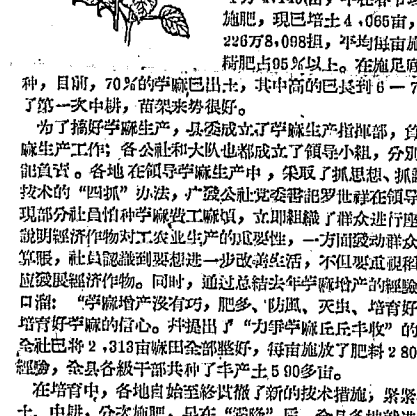 施肥，现已培土4,065亩，
226万8,098担，平均每亩施
种，目前，70%的苧麻已出土，其中高的已长到6—7
了第一次中耕，苗架来势很好。
为了搞好苧麻生产，县委成立了苧麻生产指挥部，
麻生产工作；各公社和大队也都成立了领导小组，分别
能负责。各地在领导苧麻生产中，采取了抓思想、抓
技术的“四抓”办法，广发公社党委书记罗世祥在领导
现部分社员怕种苧麻费工麻烦，立即组织了群众进行
说明经济作物对工农业生产的重要性，一方面发动群众
算账，社员认识到要想进一步改善生活，不但要重视粮
应发展经济作物。同时，通过总结去年苧麻增产的经验
口溜：“苧麻增产没有巧，肥多、防风、灭虫、培育好
培育好苧麻的信心。并提出了“力争苧麻丘丘丰收”的
全社已将2,313亩麻田全部整好，每亩施放了肥料280
经验，全县各级干部共种了丰产土590多亩。
在培育中，各地自始至终贯彻了新的技术措施，